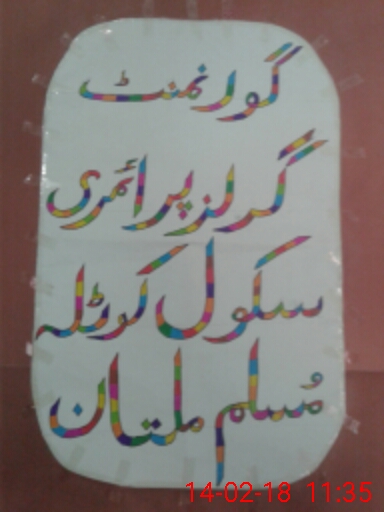 گورنمنٹ
گرلز پرائمری
سکول کوٹلہ
مُسلم ملتان
14-02-18 11:35